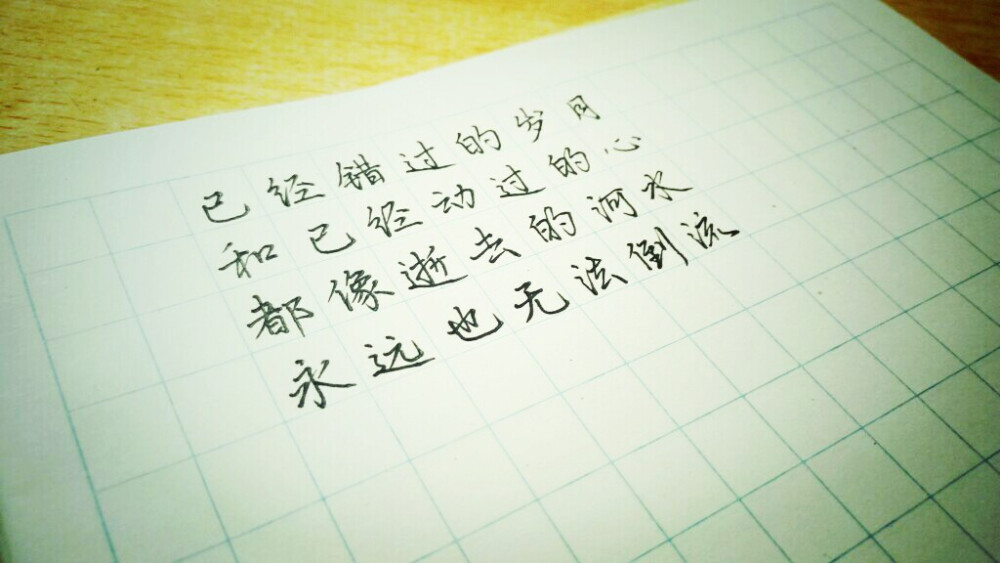 已经错过的岁月
和已经动过的心
都像逝去的河水
永远也无法倒流